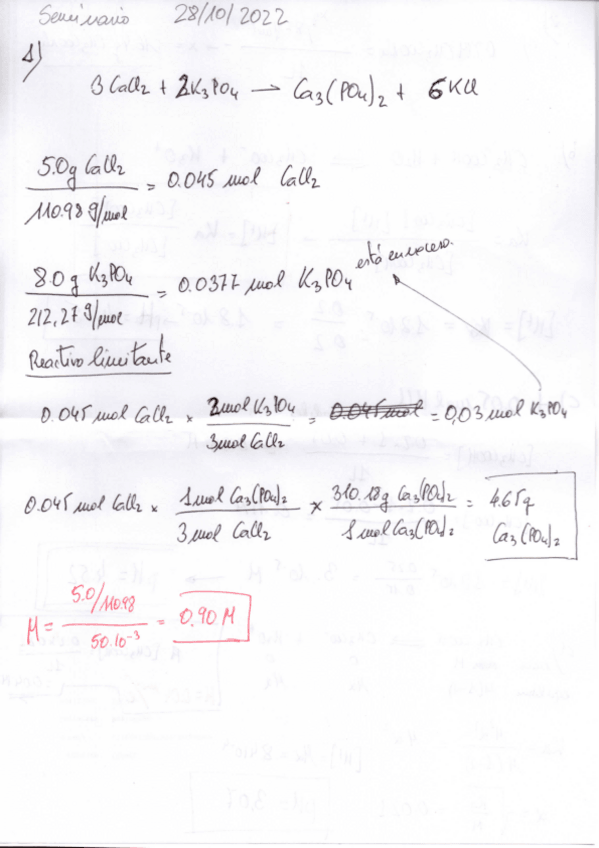 Seminario 28/10/2022
1)
3 CaCl2 + 2K3PO4 → Ca3(PO4)2 + 6KCl
5.0g CaCl2 / 110.98 g/mol = 0.045 mol CaCl2
está en exceso.
8.0 g K3PO4 / 212,27 g/mol = 0.0377 mol K3PO4
Reactivo limitante
0.045 mol CaCl2 × 2 mol K3PO4 / 3 mol CaCl2 = 0.045 mol = 0,03 mol K3PO4
0.045 mol CaCl2 × 1 mol Ca3(PO4)2 / 3 mol CaCl2 × 310.18g Ca3(PO4)2 / 1 mol Ca3(PO4)2 = 4.65g Ca3(PO4)2
M = 5.0/110.98 / 50.10-3 = 0.90 M